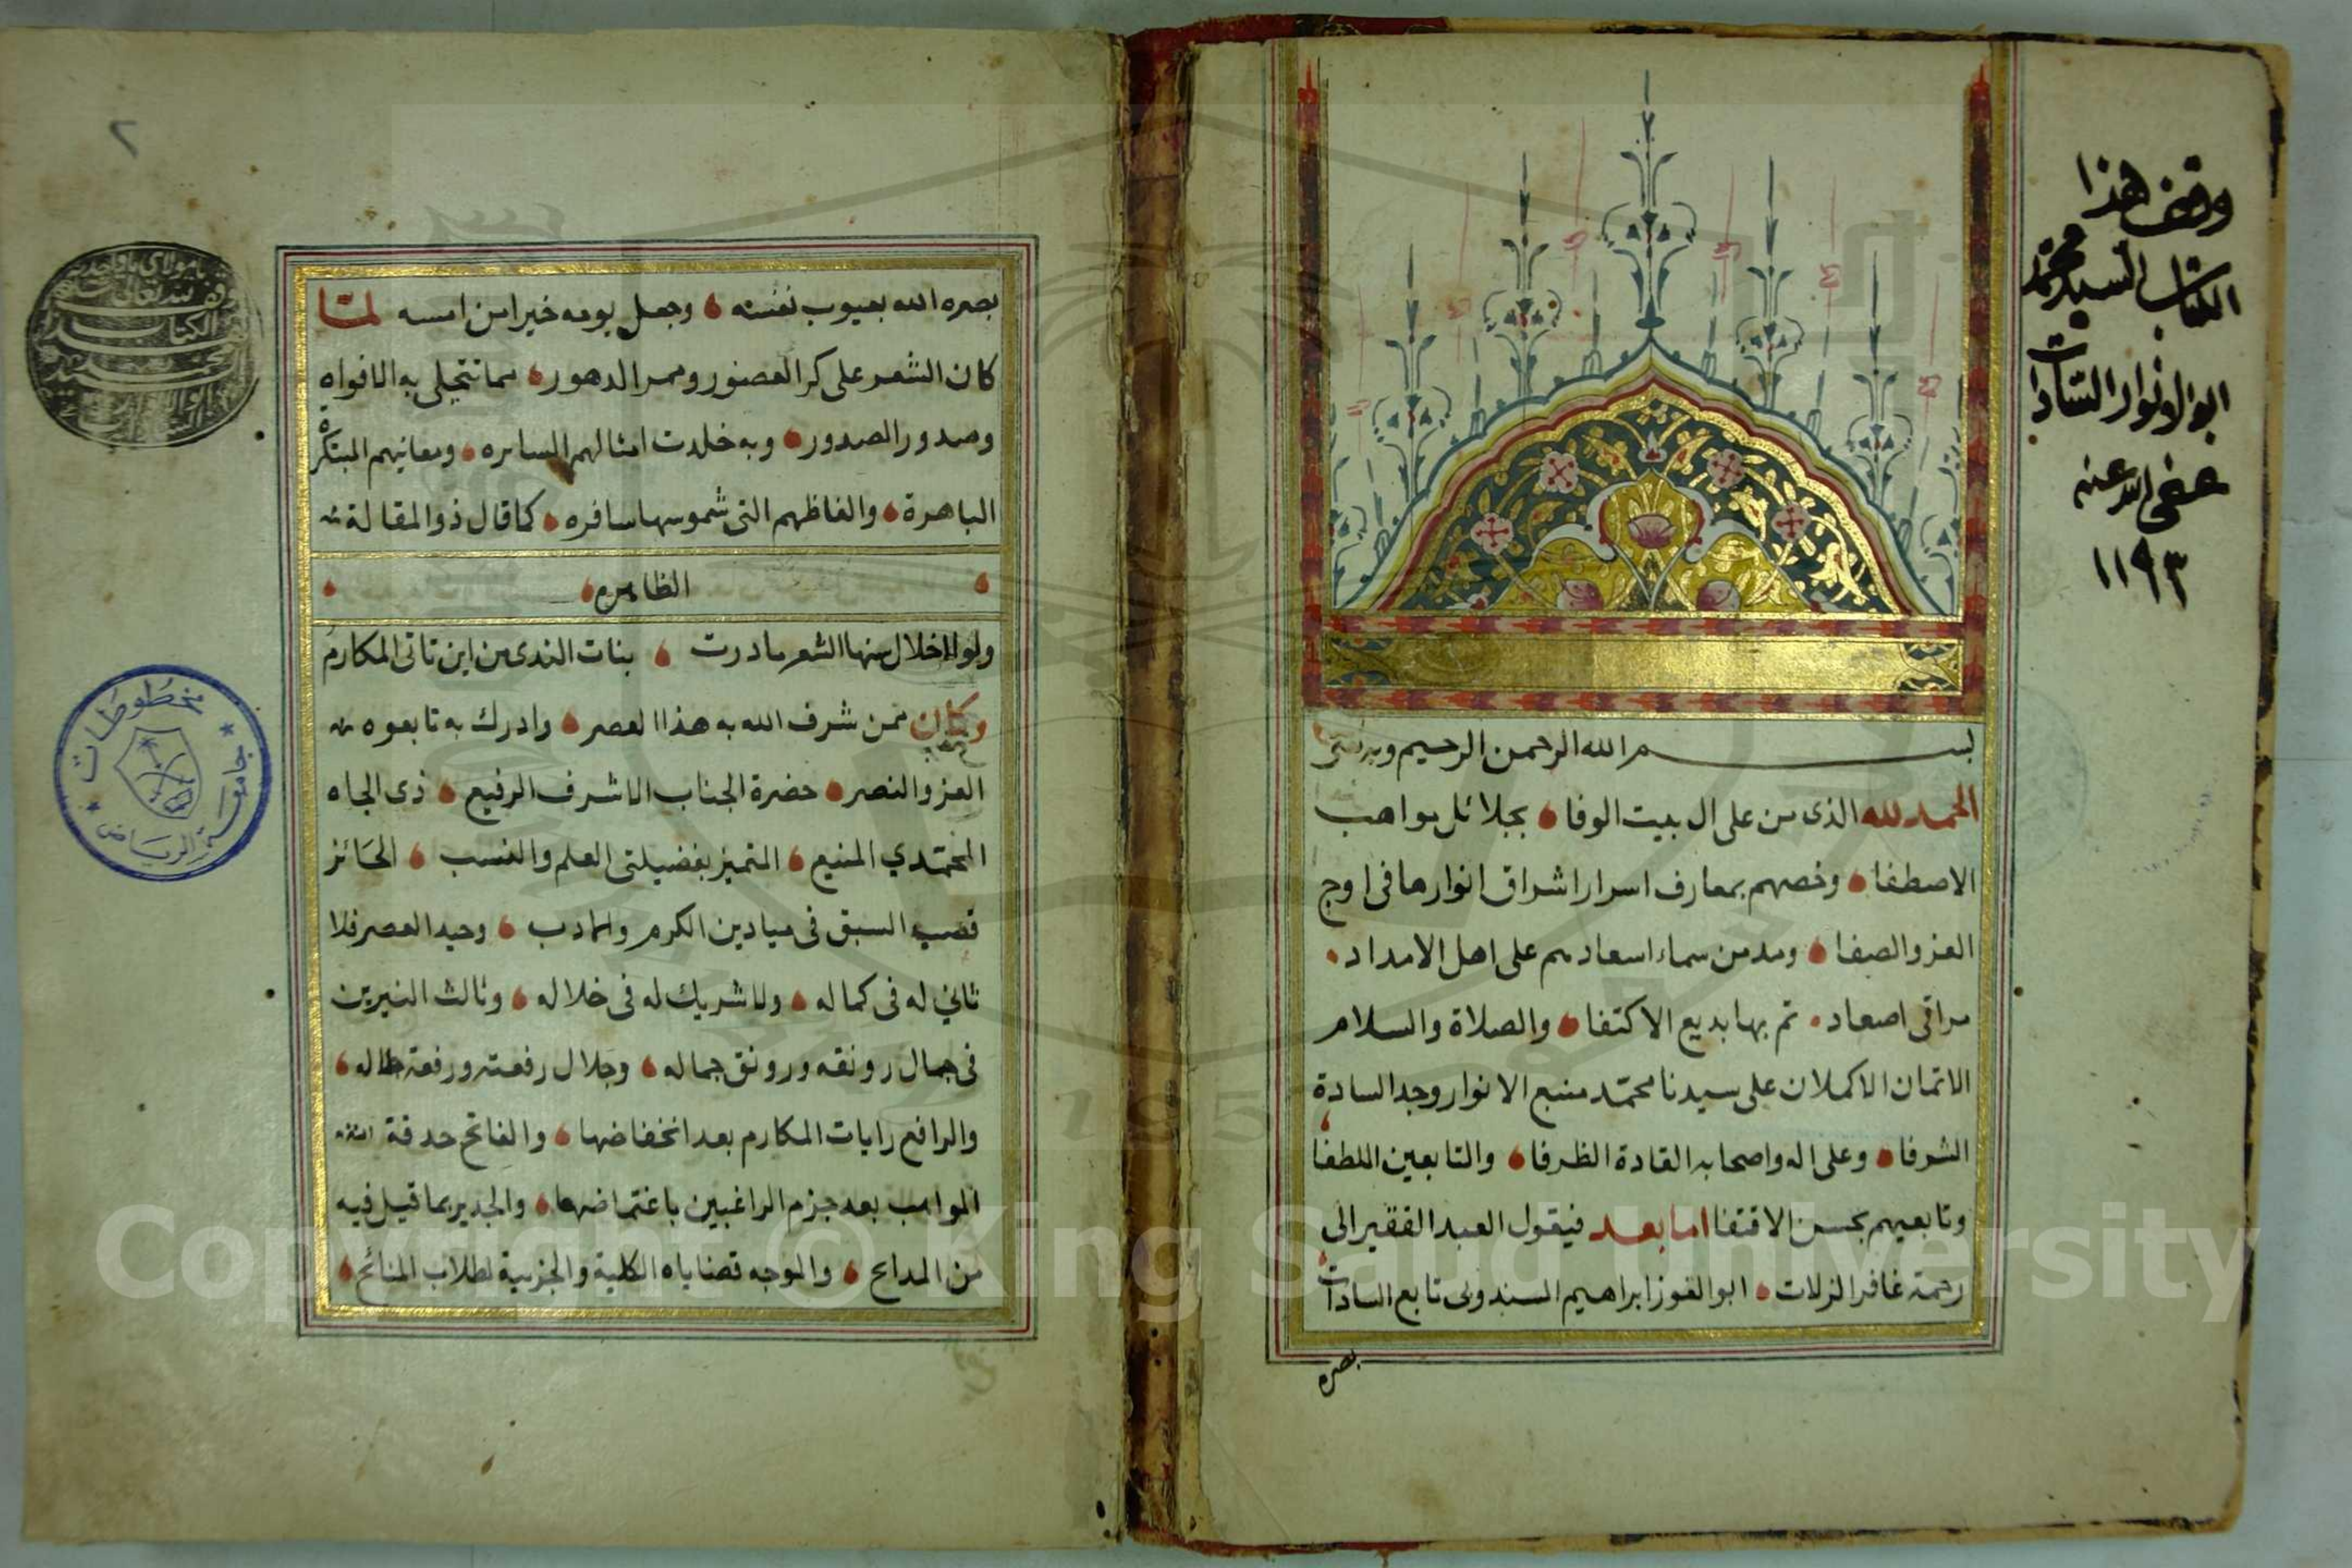 وقف هذا
الكتاب السيد محمد
ابو الانوار السادات
عفى الله عنه
١١٩٣
بسم الله الرحمن الرحيم وبه ثقتى
الحمد لله الذى من على ال بيت الوفا بجلائل مواهب
الاصطفا وخصهم بمعارف اسرار اشراق انوارها فى اوج
العز والصفا ومد من سماء اسعادهم على اهل الامداد
مراقى اصعاد تم بها بديع الاكتفا والصلاة والسلام
الاتمان الاكملان على سيدنا محمد منبع الانوار وجد السادة
الشرفا وعلى اله واصحابه القادة الظرفا والتابعين اللطفا
وتابعيهم بحسن الاقتفا اما بعد فيقول العبد الفقير الى
رحمة غافر الزلات ابو الفوز ابراهيم السندوبى تابع السادات
بصره
٢
بصره الله بعيوب نفسه وجعل يومه خيرا من امسه لما
كان الشعر على كر العصور وممر الدهور مما تتحلى به الافواه
وصدور الصدور وبه خلدت امثالهم السايره ومعانيهم المبتكرة
الباهرة والفاظهم التى شموسها سافره كما قال ذو المقالة
الظاهره
ولولا خلال سنها الشعر ما درت بنات الندى من اين تاتى المكارم
وكان ممن شرف الله به هذا العصر وادرك به تابعوه
العز والنصر حضرة الجناب الاشرف الرفيع ذى الجاه
المحمدي المنيع المتميز بفضيلتى العلم والنسب الحائز
قصب السبق فى ميادين الكرم والادب وحيد العصر فلا
ثاني له فى كماله ولا شريك له فى خلاله وثالث النيرين
فى جمال رونقه ورونق جماله وجلال رفعته ورفعة جلاله
والرافع رايات المكارم بعد انخفاضها والفاتح حدقة
المواهب بعد جزم الراغبين باغتماضها والجدير بما قيل فيه
من المدايح والموجه قضاياه الكلية والجزبية لطلاب المنائح
يا مولاي يا واحد
وقف لله تعالى
الكتاب
محمد
جامعة الرياض
مخطوطات
Copyright © King Saud University
195